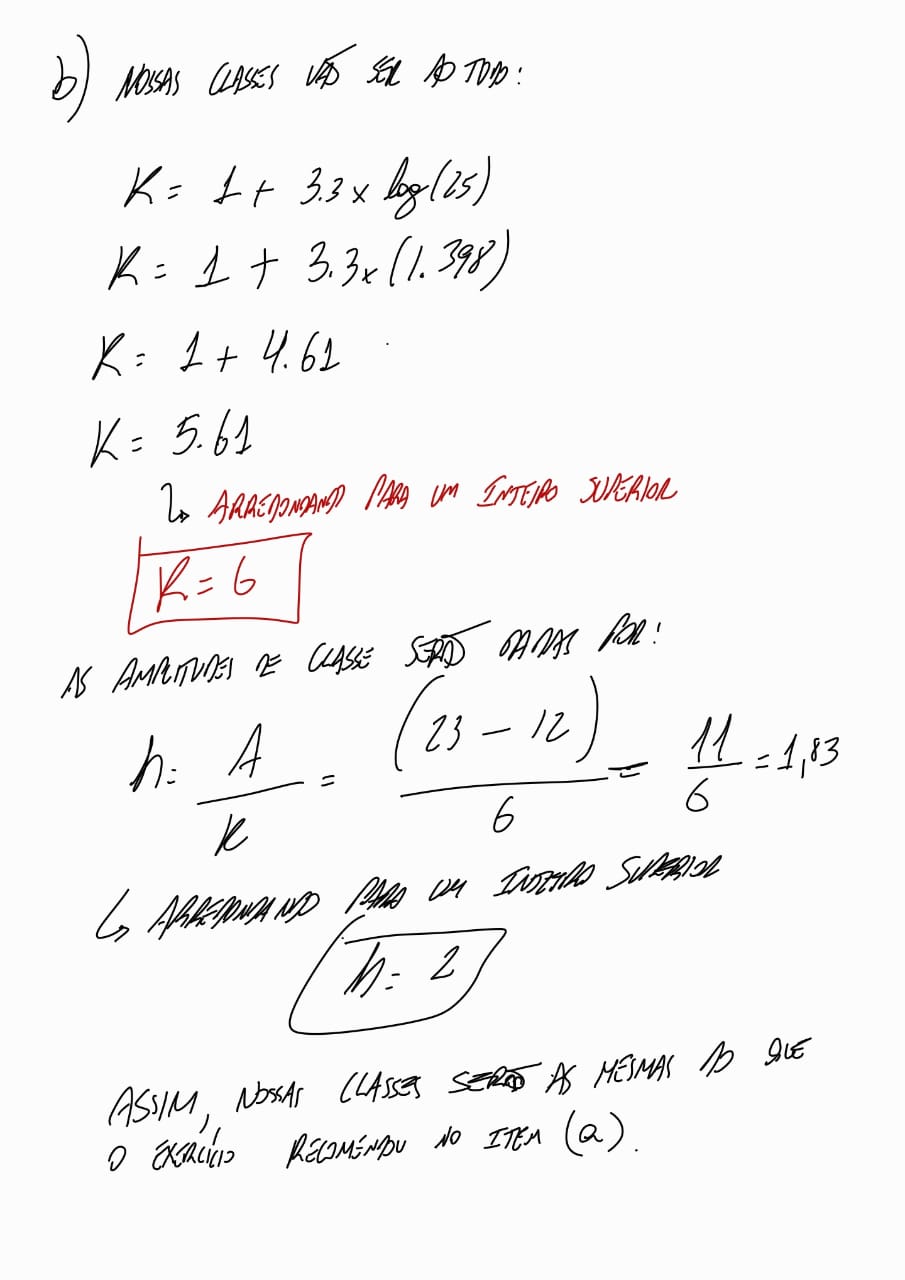 b) NOSSAS CLASSES VÃO SER AO TODO:
K = 1 + 3.3 x log(25)
K = 1 + 3.3x (1.398)
K = 1 + 4.61
K = 5.61
↳ ARREDONDANDO PARA UM INTEIRO SUPERIOR
K = 6
AS AMPLITUDES DE CLASSE SERÃO DADAS POR:
h = A / K = (23 - 12) / 6 = 11 / 6 = 1,83
↳ ARREDONDANDO PARA UM INTEIRO SUPERIOR
h = 2
ASSIM, NOSSAS CLASSES SERÃO AS MESMAS AO QUE
O EXERCÍCIO RECOMENDOU NO ITEM (a).